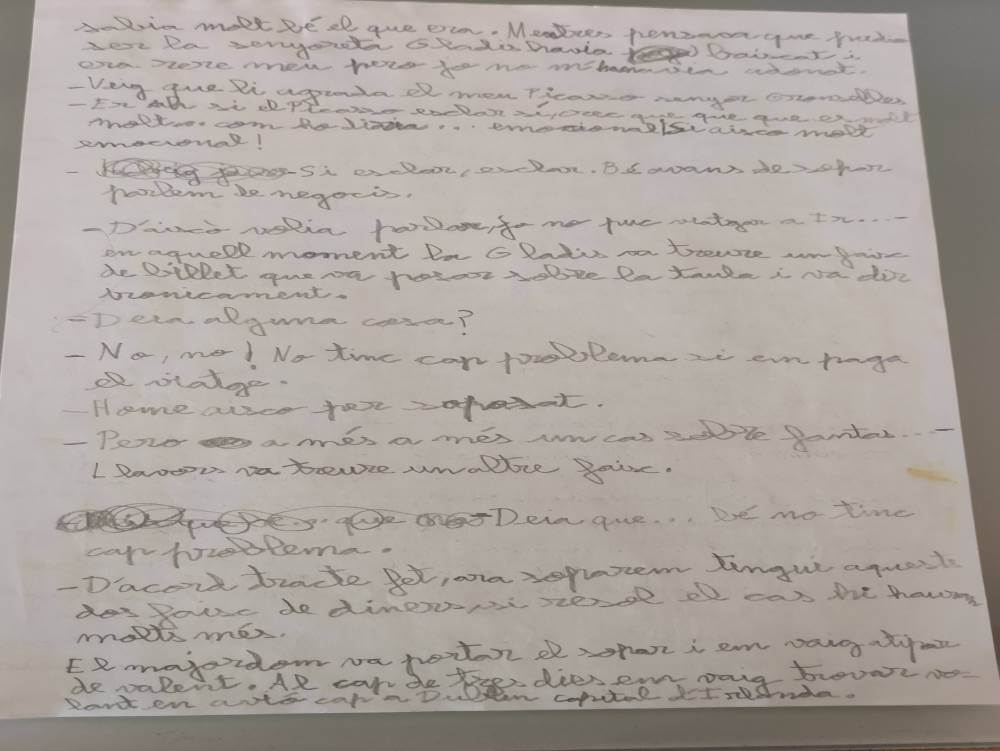 sabia molt bé el que era. Mentres pensava que podia
ser la senyoreta Gladis havia baixat i
era rere meu pero jo no m'havia adonat.
- Veig que li agrada el meu Picasso senyor Gronselles
- Er ah si el Picasso esclar si, crec que que que es molt
molt... com ho diria... emocional! Si aixo molt
emocional!
- Si esclar, esclar. Bé avans de sopar
parlem de negocis.
- D'això volia parlar, jo no puc viatgar a Ir...-
en aquell moment la Gladis va treure un faix
de billet que va posar sobre la taula i va dir
ironicament.
- Deia alguna cosa?
- No, no! No tinc cap problema si em paga
el viatge.
- Home aixo per soposat.
- Pero a més a més un cas sobre fantas...-
Llavors va treure un altre faix.
- Deia que... bé no tinc
cap problema.
- D'acord tracte fet, ara soparem tingui aquests
dos faix de diners, si resol el cas hi haura
molts més.
El majordom va portar el sopar i em vaig atipar
de valent. Al cap de tres dies em vaig trovar vo-
lant en avió cap a Dublin capital d'Irlanda.